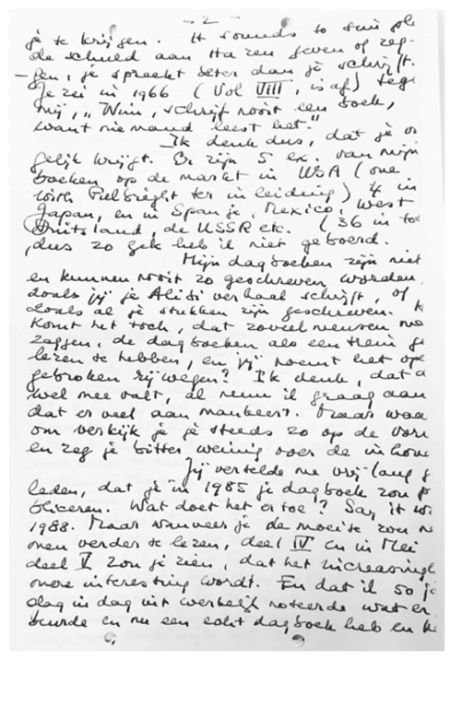 - 2 -
je te krijgen. It sounds so
de schuld aan Hazen geven of zeg-
gen, je spreekt beter dan je schrijft.
Je zei in 1966 (Vol VIII, is af)
mij, "Wim, schrijf nooit een boek,
want niemand leest het."
Ik denk dus, dat je
gelijk krijgt. Er zijn 5 ex. van mijn
boeken op de markt in USA (one
with Fulbright ter inleiding) 4 in
Japan, en in Spanje, Mexico, West
Duitsland, de USSR etc. (36 in
dus zo gek heb ik niet geboerd.
Mijn dagboeken zijn niet
en kunnen nooit zo geschreven worden
zoals jij je verhaal schrijft, of
zoals al je stukken zijn geschreven.
Komt het toch, dat zoveel mensen
zeggen, de dagboeken als een trein
lezen te hebben, en jij noemt het
gebroken rijwegen? Ik denk, dat
wel mee valt, al neem ik graag aan
dat er veel aan mankeert. Maar
om verkijk je je steeds zo op de
en zeg je bitter weinig over de
Jij vertelde me vrij lang
leden, dat je in 1985 je dagboek zou
bliceren. Wat doet het er toe? Say, it
1988. Maar wanneer je de moeite zou
men verder te lezen, deel IV en in Mei
deel V zou je zien, dat het increasingly
more interesting wordt. En dat ik 50
dag in dag uit werkelijk noteerde wat er
beurde en nu een echt dagboek heb en